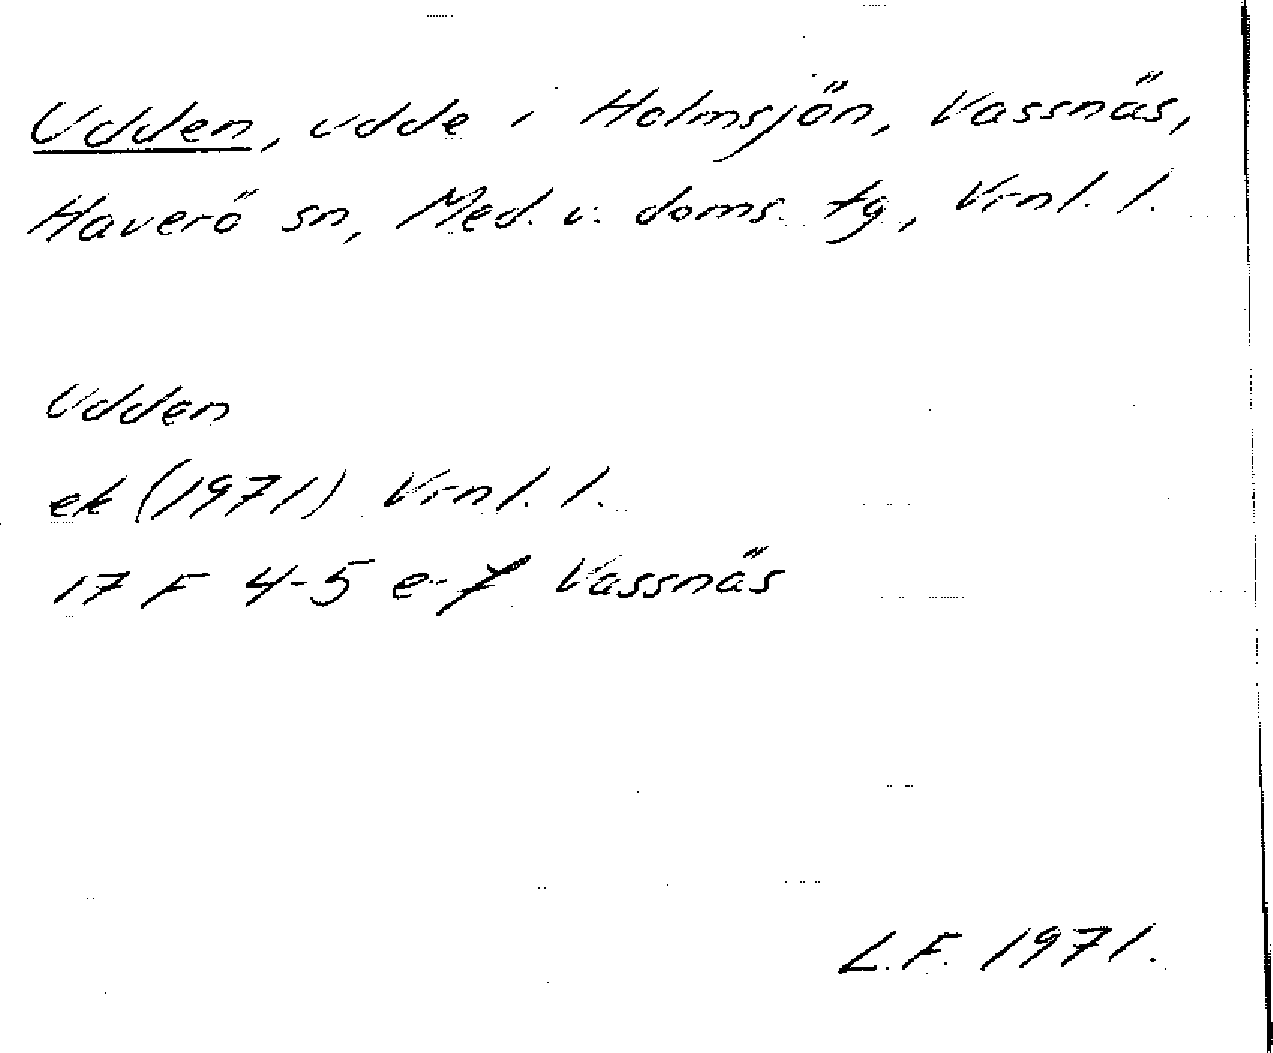 Udden, udde i Holmsjön, Vassnäs,
Haverö sn, Med. v. doms. tg., Vrnl. l.
Udden
ek (1971) Vrnl. l.
17 F 4-5 e-f Vassnäs
L.F. 1971.